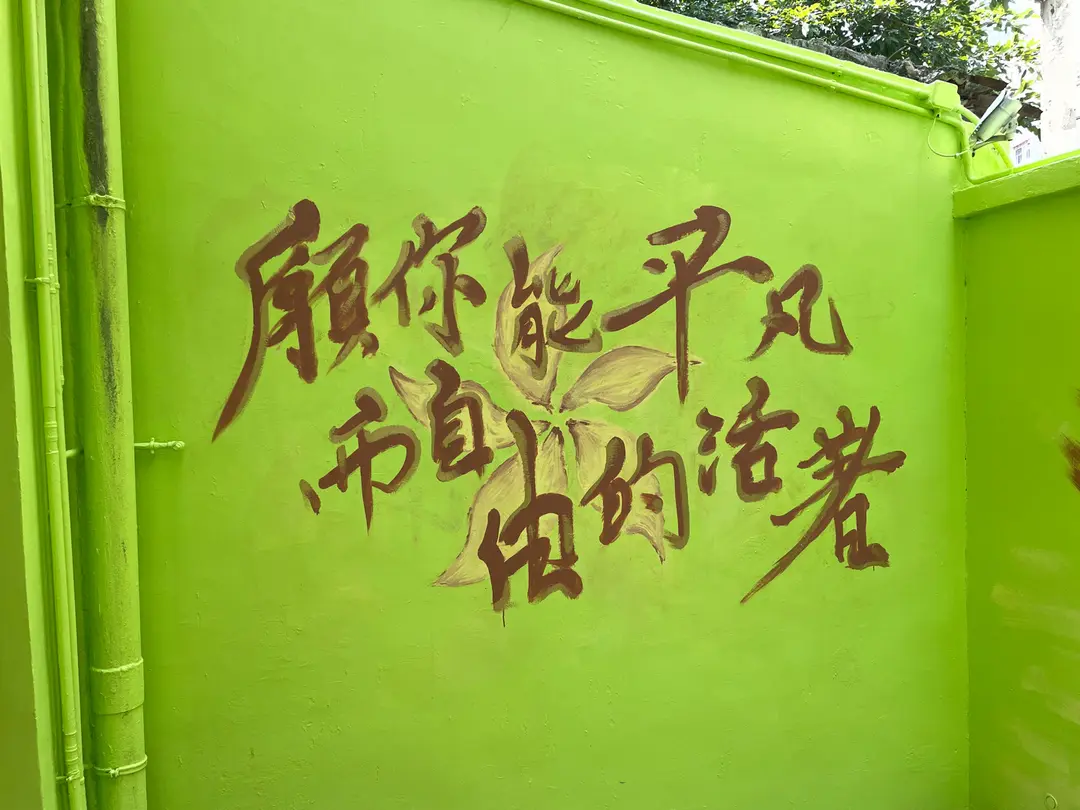 願你能平凡
而自由的活著